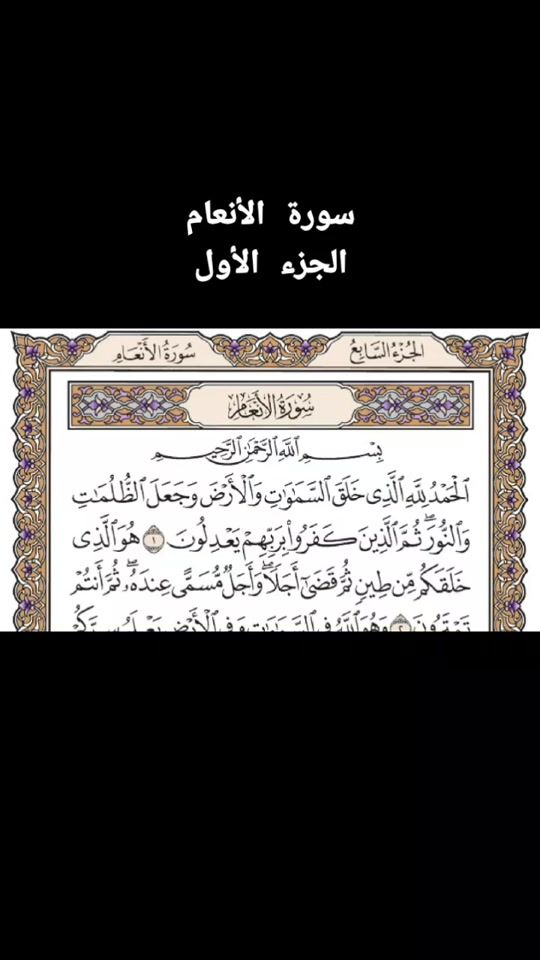 سورة الأنعام
الجزء الأول
الجُزْءُ السَّابِعُ
سُورَةُ الأَنْعَامِ
سُورَةُ الأَنْعَامِ
بِسْمِ ٱللَّهِ ٱلرَّحْمَٰنِ ٱلرَّحِيمِ
ٱلْحَمْدُ لِلَّهِ ٱلَّذِى خَلَقَ ٱلسَّمَٰوَٰتِ وَٱلْأَرْضَ وَجَعَلَ ٱلظُّلُمَٰتِ
وَٱلنُّورَ ۖ ثُمَّ ٱلَّذِينَ كَفَرُوا۟ بِرَبِّهِمْ يَعْدِلُونَ ١ هُوَ ٱلَّذِى
خَلَقَكُم مِّن طِينٍ ثُمَّ قَضَىٰٓ أَجَلًا ۖ وَأَجَلٌ مُّسَمًّى عِندَهُۥ ۖ ثُمَّ أَنتُمْ
تَمْتَرُونَ ٢ وَهُوَ ٱللَّهُ فِى ٱلسَّمَٰوَٰتِ وَفِى ٱلْأَرْضِ يَعْلَمُ سِرَّكُمْ